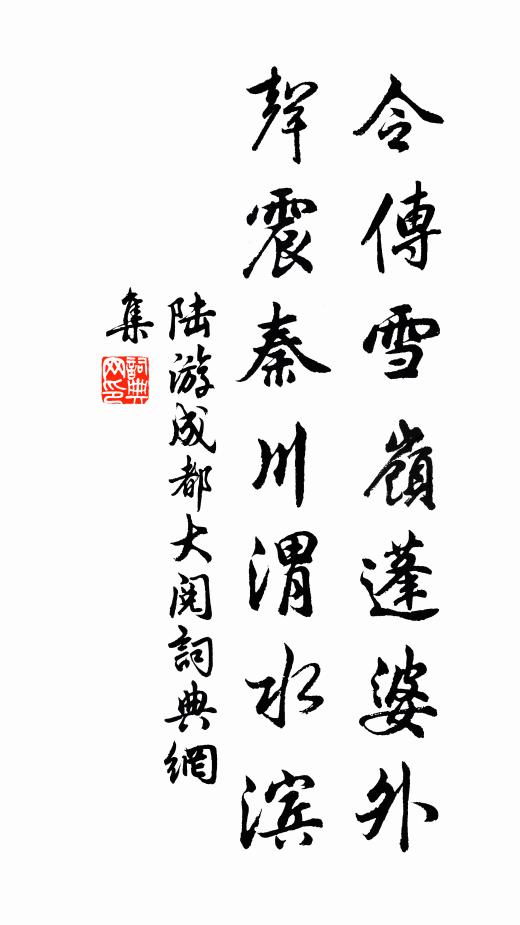 令傳雪嶺蓬婆外
聲震秦川渭水滨
陆游成都大阅詞典網
集
詞典
网印